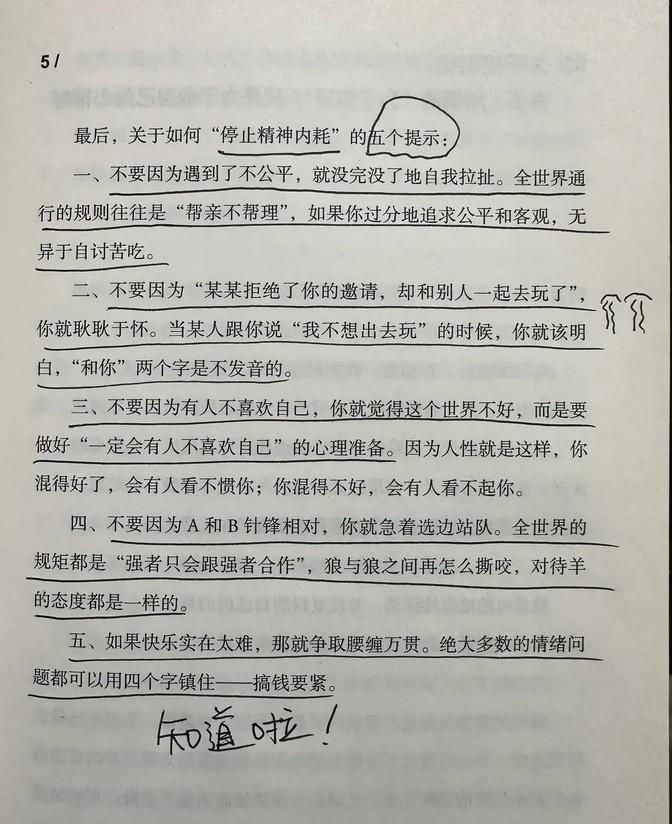 5/
最后，关于如何“停止精神内耗”的五个提示：
一、不要因为遇到了不公平，就没完没了地自我拉扯。全世界通
行的规则往往是“帮亲不帮理”，如果你过分地追求公平和客观，无
异于自讨苦吃。
二、不要因为“某某拒绝了你的邀请，却和别人一起去玩了”，
你就耿耿于怀。当某人跟你说“我不想出去玩”的时候，你就该明
白，“和你”两个字是不发音的。
三、不要因为有人不喜欢自己，你就觉得这个世界不好，而是要
做好“一定会有人不喜欢自己”的心理准备。因为人性就是这样，你
混得好了，会有人看不惯你；你混得不好，会有人看不起你。
四、不要因为 A 和 B 针锋相对，你就急着选边站队。全世界的
规矩都是“强者只会跟强者合作”，狼与狼之间再怎么撕咬，对待羊
的态度都是一样的。
五、如果快乐实在太难，那就争取腰缠万贯。绝大多数的情绪问
题都可以用四个字镇住——搞钱要紧。
知道啦！